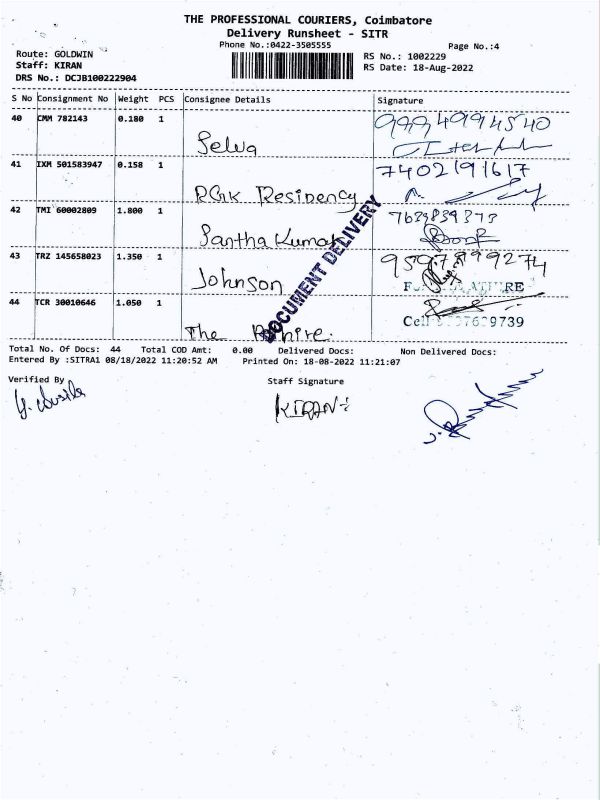 THE PROFESSIONAL COURIERS, Coimbatore
Delivery Runsheet - SITR
Phone No.:0422-3505555
Page No.:4
Route: GOLDWIN
RS No.: 1002229
Staff: KIRAN
RS Date: 18-Aug-2022
DRS No.: DCJB100222904
S No Consignment No Weight PCS Consignee Details Signature
40 CMM 782143 0.180 1
Selva
41 IXM 501583947 0.158 1 7402191617
RGK Residency
42 TMI 60002809 1.800 1 7639839373
Santha Kumar
43 TRZ 145658023 1.350 1
Johnson
44 TCR 30010646 1.050 1
The
DOCUMENT DELIVERY
Total No. Of Docs: 44 Total COD Amt: 0.00 Delivered Docs: Non Delivered Docs:
Entered By :SITRA1 08/18/2022 11:20:52 AM Printed On: 18-08-2022 11:21:07
Verified By
Staff Signature
KIRAN